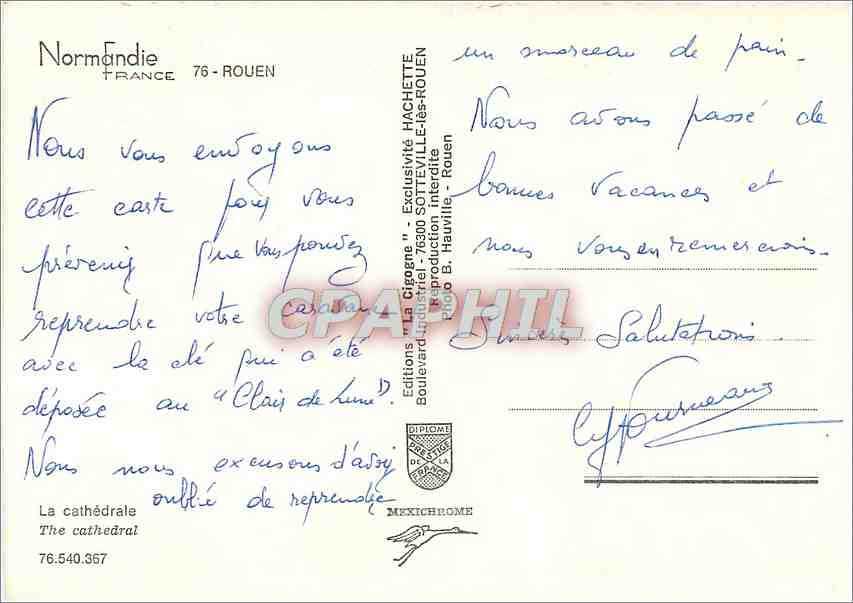 Normandie
FRANCE
76 - ROUEN
Nous vous envoyons
cette carte pour vous
prévenir que vous pouvez
reprendre votre caravane
avec la clé qui a été
déposée au "Clair de Lune".
Nous nous excusons d'avoir
oublié de reprendre
un morceau de pain.
Nous avons passé de
bonnes vacances et
nous vous en remercions.
Sincères Salutations.
La cathédrale
The cathedral
76.540.367
Editions "La Cigogne" - Exclusivité HACHETTE
Boulevard Industriel - 76300 SOTTEVILLE-lès-ROUEN
Reproduction Interdite
Photo B. Hauville - Rouen
CPAPHIL
DIPLOME
PRESTIGE
DE LA
FRANCE
MEXICHROME